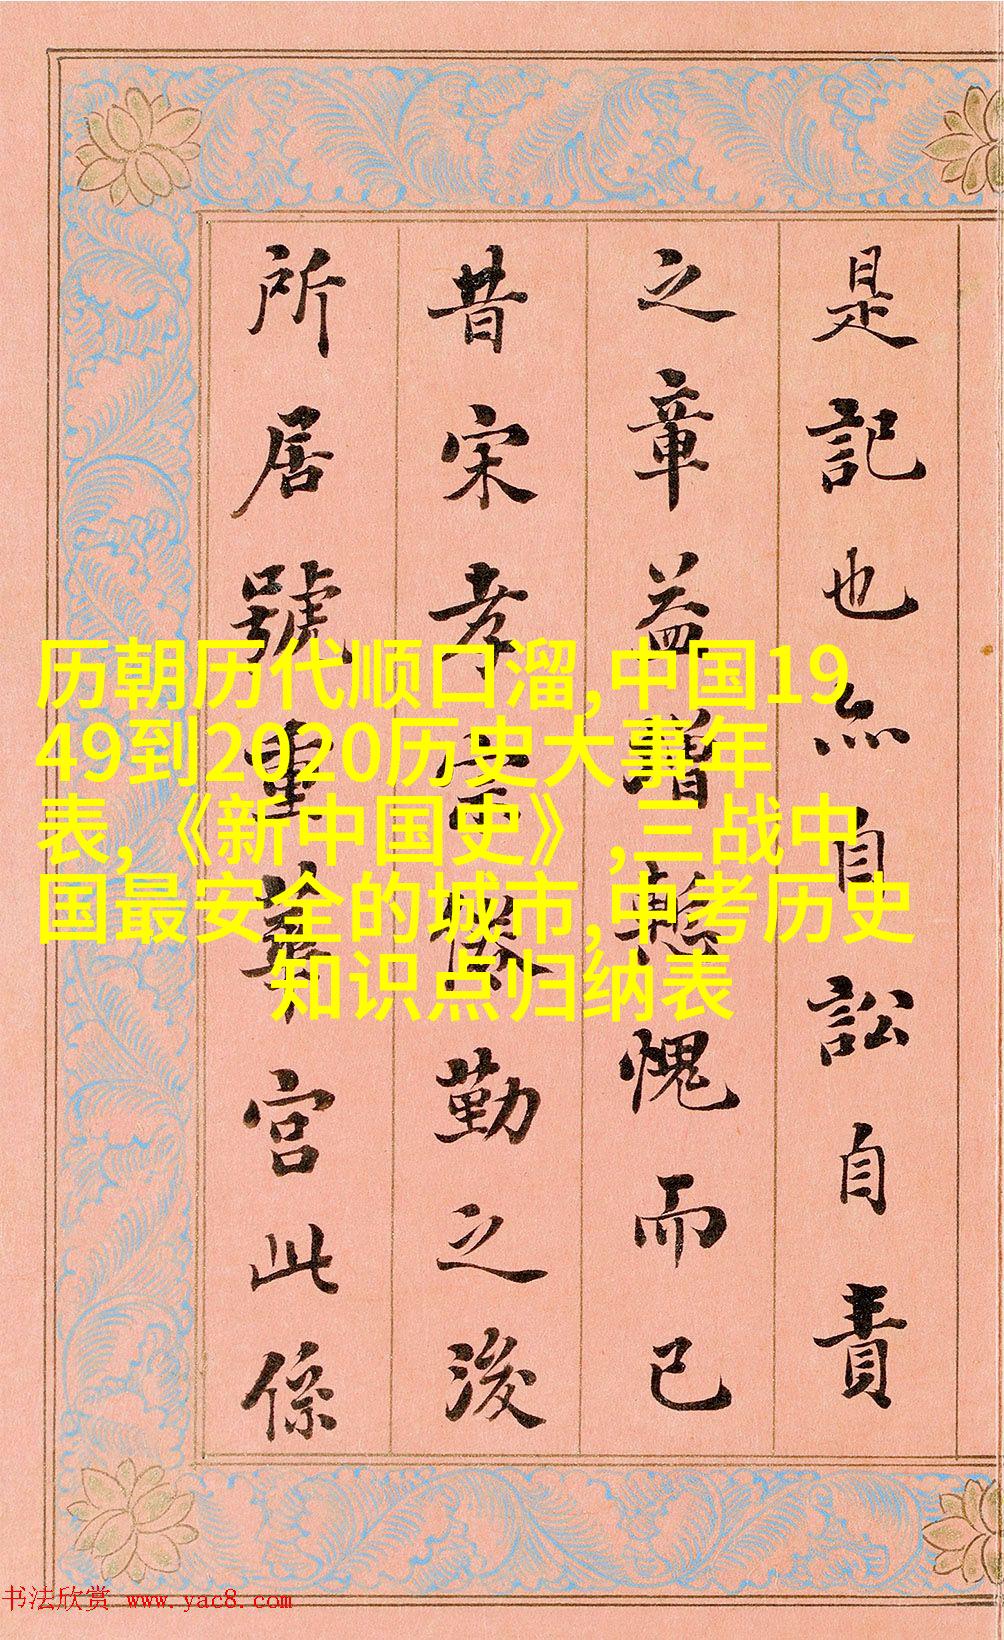 是記也亦自訟自責
之章益增慙愧而已
昔宋孝宗倦勤之後
所居號重華宮此係
历朝历代顺口溜,中国19
49到2020历史大事年
表,《新中国史》,三战中
国最安全的城市,中考历史
知识点归纳表
书法欣赏 www.yac8.com